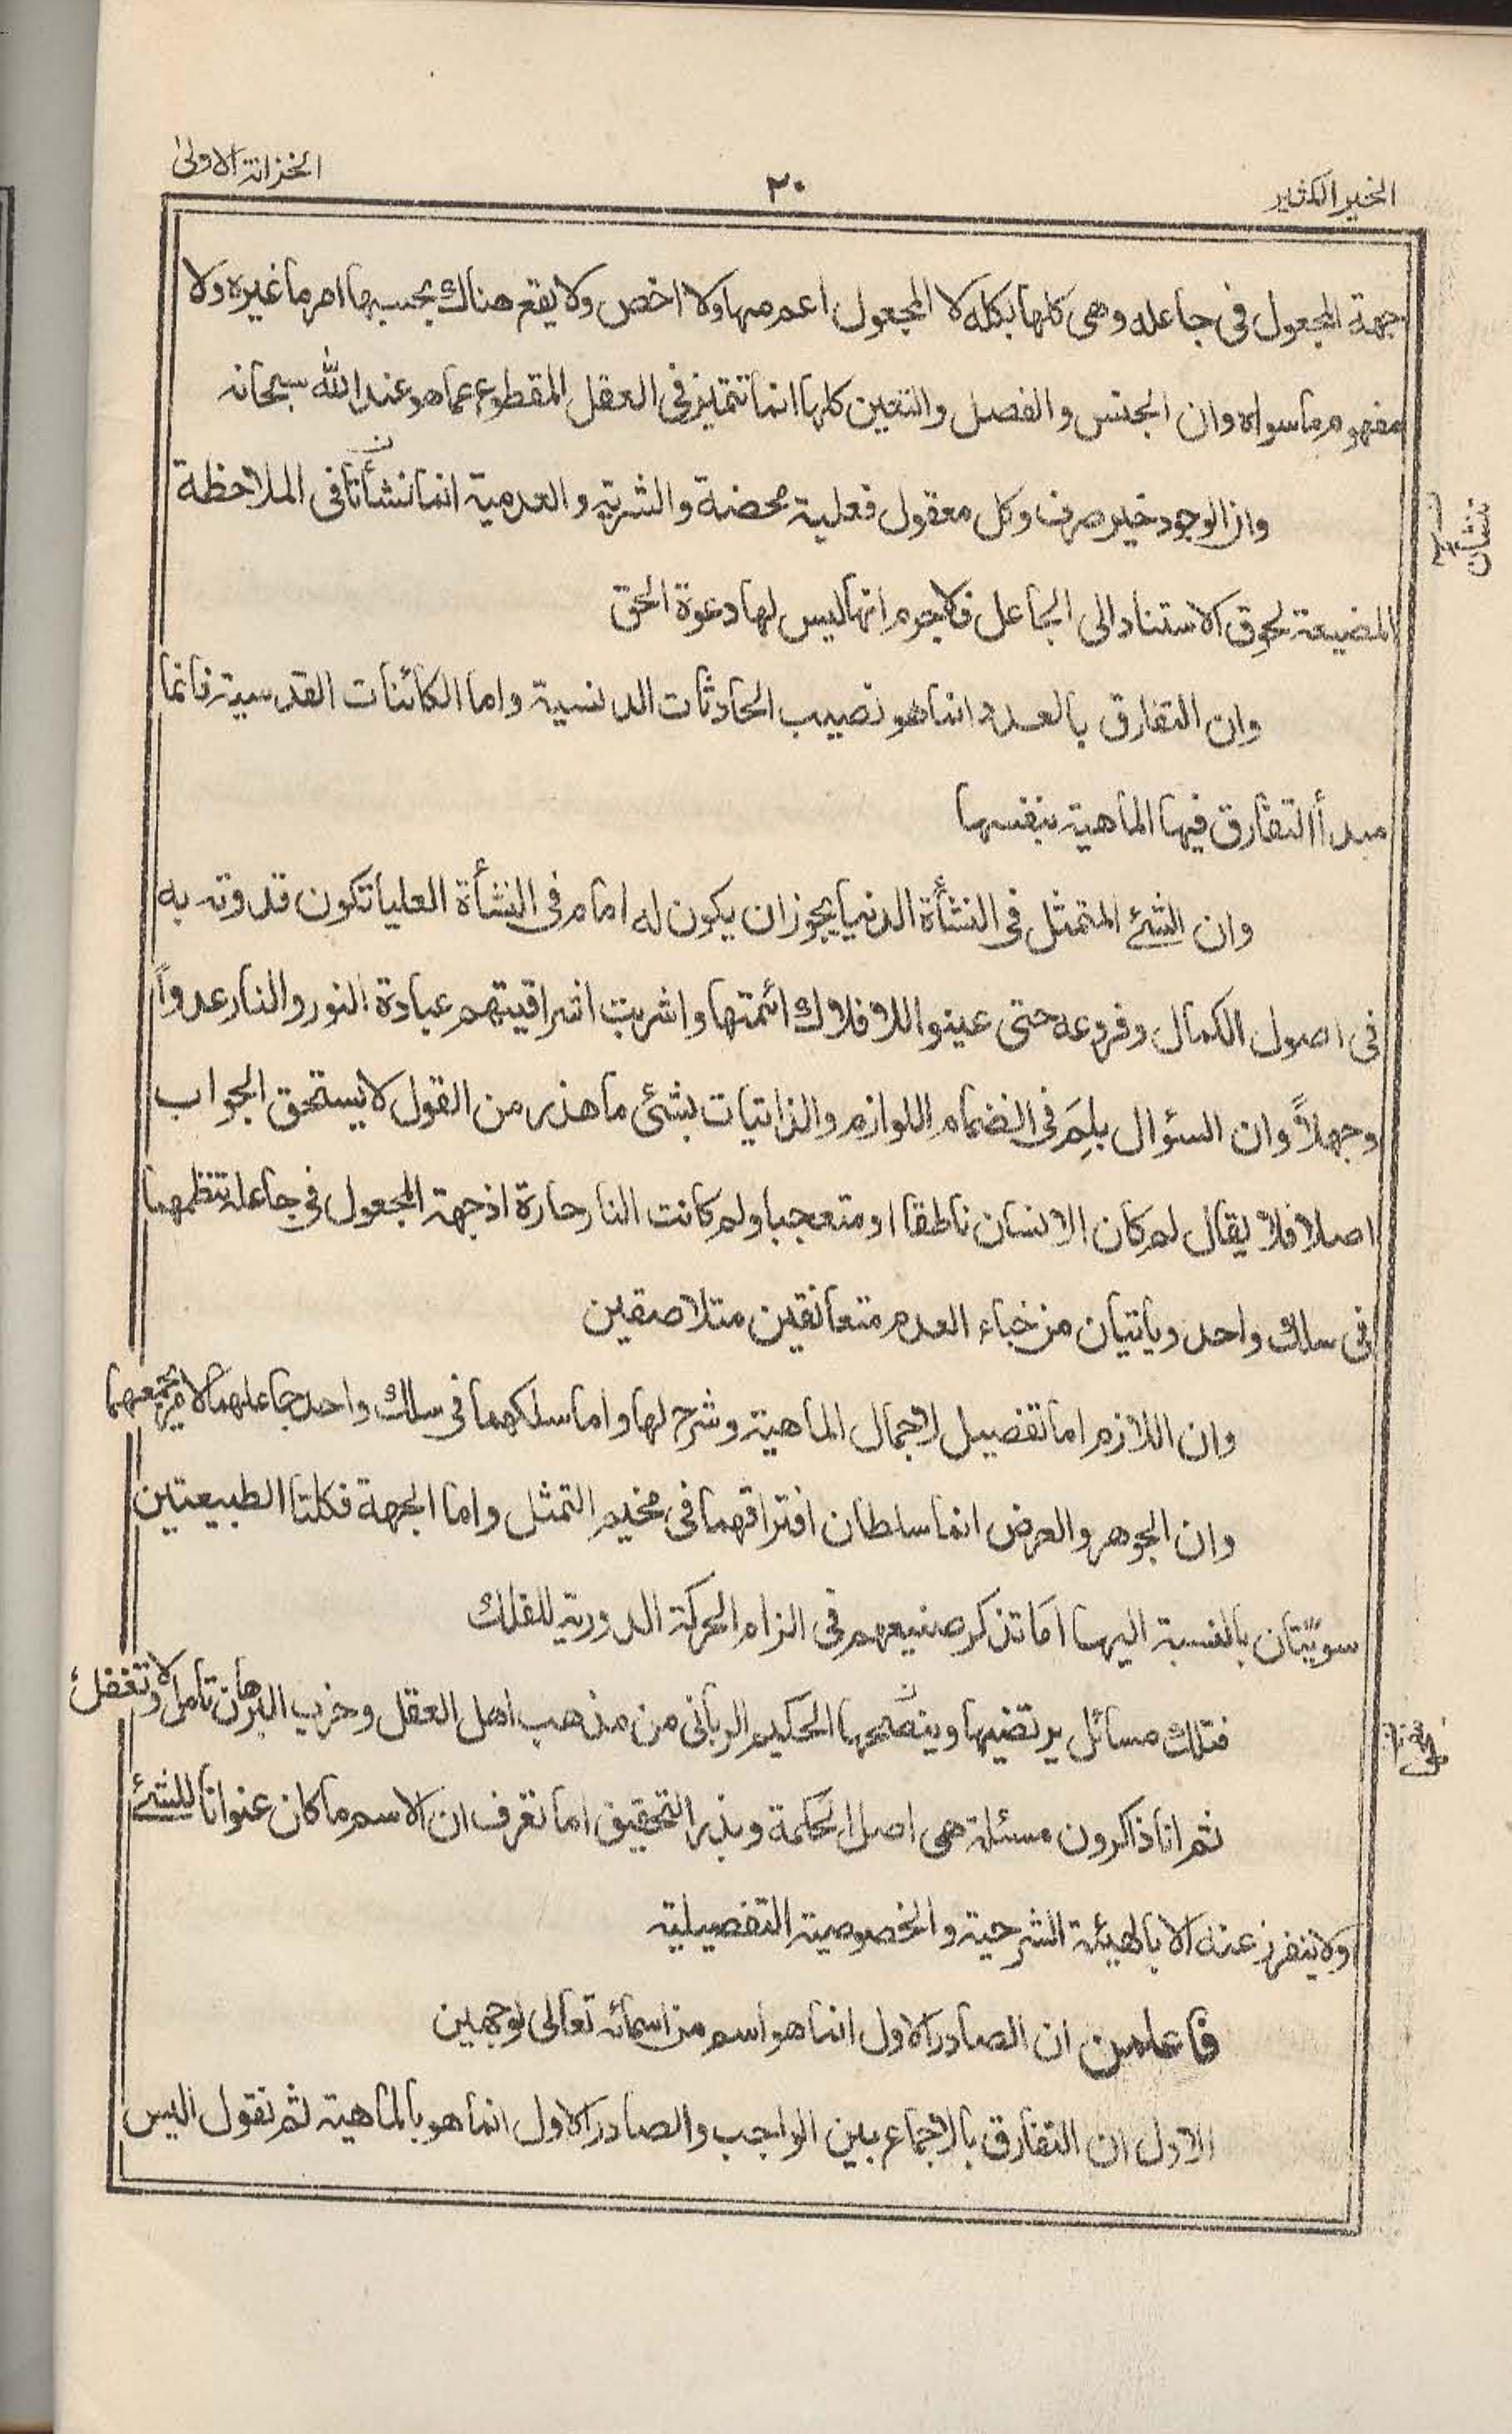 الخير الكثير
٢٠
الخزانة الاولى
جهة المجعول فى جاعله وهى كلها بكله لا المجعول اعم منها ولا اخص ولا يقع هناك بحسبها امر ما غيره ولا
مفهوم ما سواه وان الجنس والفصل والتعين كلها انما تتميز فى العقل المقطوع عما هو عند الله سبحانه
وان الوجود خير صرف وكل معقول فعلية محضة والشرية والعدمية انما نشأتا فى الملاحظة
المضيعة لحوق الاستناد الى الجاعل فلا جرم انها ليس لها دعوة الحق
وان التفارق بالعدد انما هو نصيب الحادثات الدنسية واما الكائنات القدسية فانما
مبدأ التفارق فيها الماهية بنفسها
وان الشئ المتمثل فى النشأة الدنيا يجوز ان يكون له امام فى النشأة العليا تكون قدوته به
فى اصول الكمال وفروعه حتى عينوا للافلاك ائمتها واشربت اشراقيتهم عبادة النور والنار عدواً
وجهلاً وان السؤال بلِمَ فى انضمام اللوازم والذاتيات بشئ ما هذر من القول لا يستحق الجواب
اصلا فلا يقال لم كان الانسان ناطقا او متعجبا ولم كانت النار حارة اذ جهة المجعول فى جاعله تنظمهما
فى سلك واحد ويأتيان من خباء العدم متعانقين متلاصقين
وان اللازم اما تفصيل لاجمال الماهية وشرح لها واما سلكهما فى سلك واحد جاعلهما لامر يجمعهما
وان الجوهر والعرض انما سلطان افتراقهما فى مخيم التمثل واما الجهة فكلتا الطبيعتين
سويّتان بالنسبة اليها اما تذكر صنيعهم فى الزام الحركة الدورية للفلك
فتلك مسائل يرتضيها وينصحها الحكيم الربانى من مذهب اهل العقل وحزب البرهان تامل ولا تغفل
ثم انا ذاكرون مسئلة هى اصل الحكمة وبذر التحقيق اما تعرف ان الاسم ما كان عنوانا للشئ
ولا ينفرز عنه الا بالهيئة الشرحية والخصوصية التفصيلية
فاعلمن ان الصادر الاول انما هو اسم من اسمائه تعالى لوجهين
الاول ان التفارق بالاجماع بين الواجب والصادر الاول انما هو بالماهية ثم نقول اليس